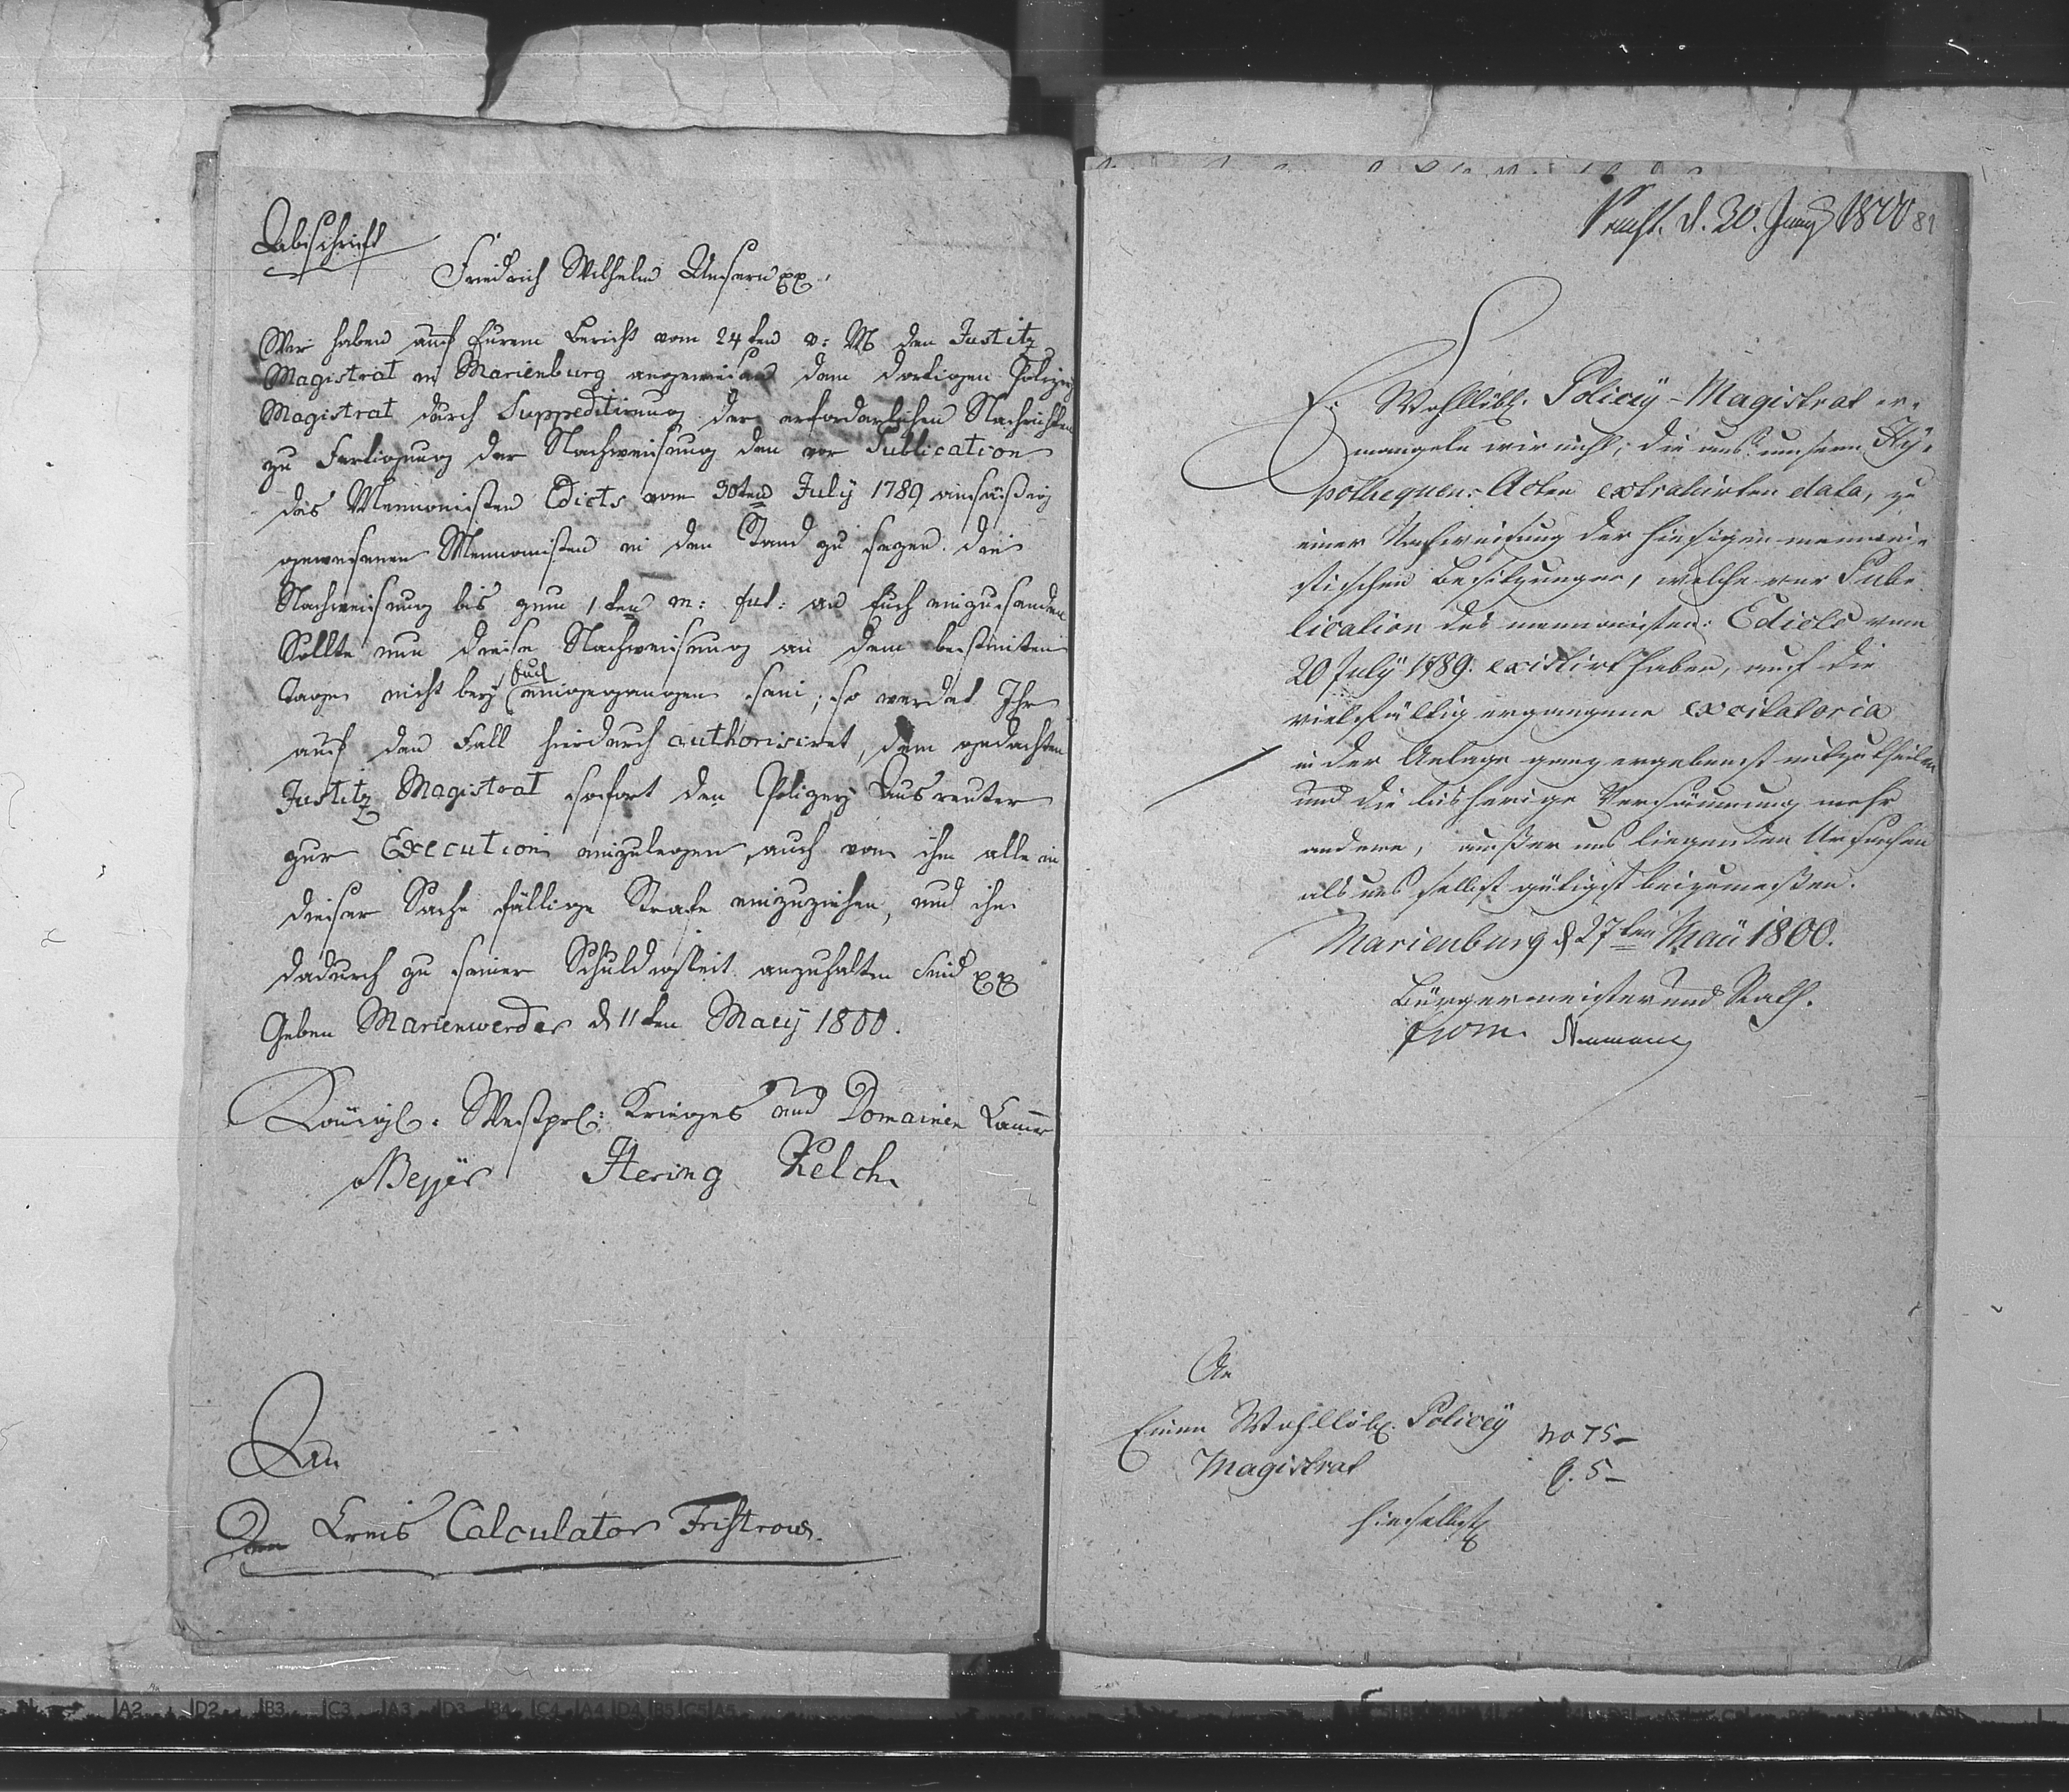 Abschrift
Friedrich Wilhelm Unsern pp.
Wir haben auf Euren Bericht vom 24ten v: M den Justitz
Magistrat in Marienburg angewiesen dem dortigen Polizey
Magistrat durch Suppeditirung der erforderlichen Nachrichten
zu Fertigung der Nachweisung den vor Publication
das Mennonisten Edicts vom 30ten July 1789 ansäßig
gewesenen Mennonisten in den Stand zu sezen die
Nachweisung bis zum 1ten m: fut: an Euch einzusenden
Sollte nun diese Nachweisung an dem bestimten
Tage nicht bey Euch eingegangen sein; so werdet Ihr
auf den Fall hierdurch authorisiret, dem gedachten
Justitz Magistrat sofort den Polizey Ausreuter
zur Execution einzulegen, auch von ihm alle in
dieser Sache fällige Strafe einzuziehen, und ihn
dadurch zu seiner Schuldigkeit anzuhalten Sind pp
Geben Marienwerder d 11ten May 1800.
Königl: Westprl: Krieges und Domainen Kammer
Beyer Hering Kelch
An
Den Kreis Calculator Fristrow.
d. 20. Juny 1800 81
E. Wohllöbl. Policey-Magistrat er-
mangeln wir nicht, die aus unsern Hy-
pothequen-Acten extrahirten data, zu
einer Nachweisung der hiesigen mennoni-
stischen Besitzungen, welche vor Pub-
lication des mennonisten: Edicts vom
20 July 1789. existirt haben, auf die
vielfältig ergangene excitatoria
in der Anlage ganz ergebenst mitzutheilen
und die bisherige Versäumung mehr
andern, außer uns liegenden Ursachen
als uns selbst gütigst beizumeßen.
Marienburg d 27ten Maii 1800.
Bürgermeister und Rath.
Neumann
An
Einen Wohllöbl. Policey
Magistrat
hieselbst
no 75-
f. 5-